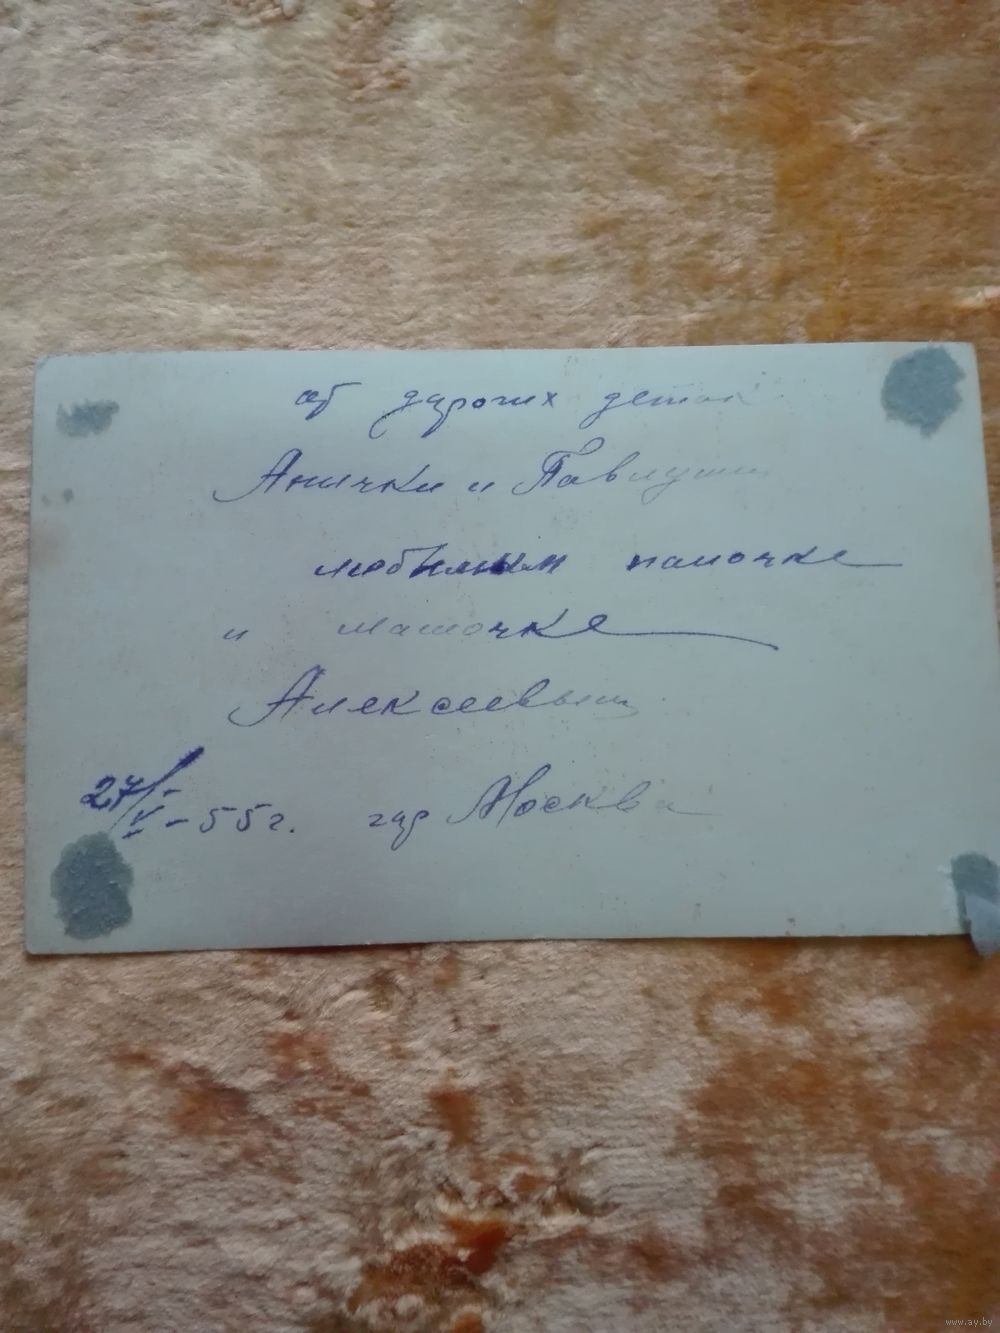 от дорогих детей
Анички и Павлуши
любимым папочке
и мамочке
Алексеевым
27/V-55г. гор Москва
www.ay.by